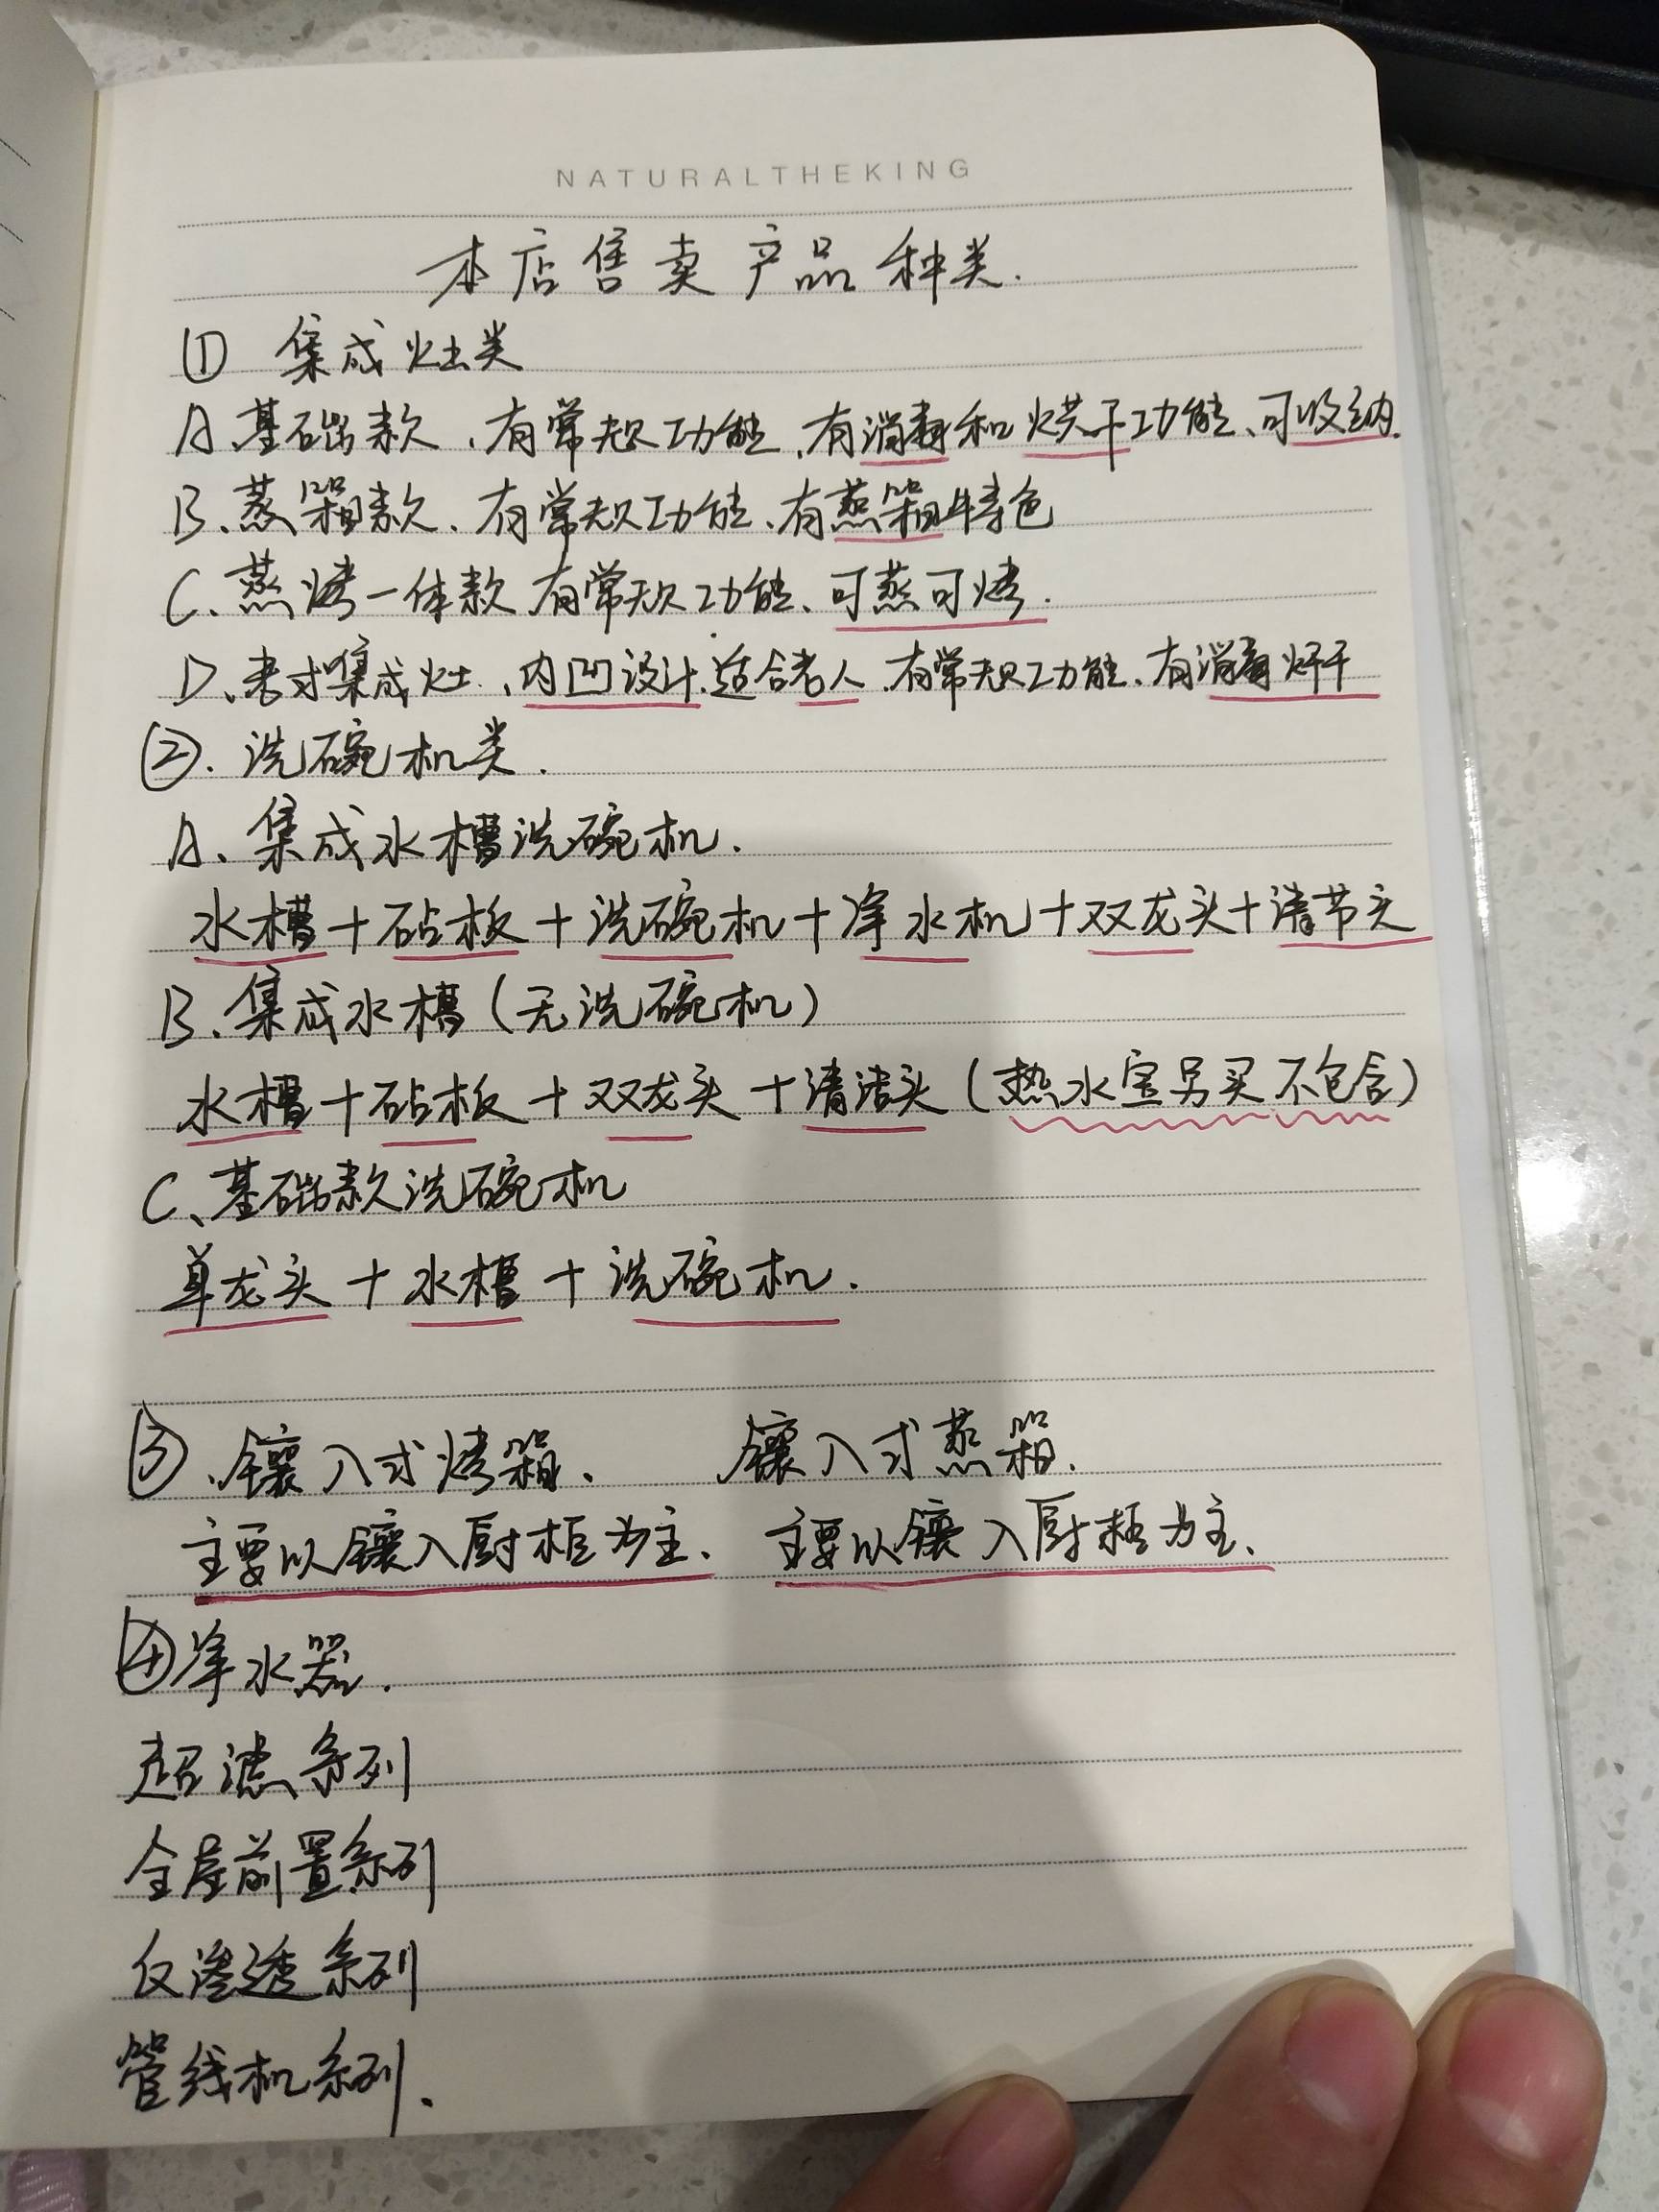 NATURALTHEKING
本店售卖产品种类.
① 集成灶类
A、基础款、有常规功能、有消毒和烘干功能、可收纳.
B、蒸箱款、有常规功能、有蒸箱特色
C、蒸烤一体款 有常规功能、可蒸可烤.
D、老式集成灶、内凹设计.适合老人.有常规功能、有消毒烘干
②. 洗碗机类.
A、集成水槽洗碗机.
水槽+砧板+洗碗机+净水机+双龙头+清节头
B、集成水槽(无洗碗机)
水槽+砧板+双龙头+清洁头(热水宝另买不包含)
C、基础款洗碗机
单龙头+水槽+洗碗机.
③、镶入式烤箱、 镶入式蒸箱.
主要以镶入厨柜为主、 主要以镶入厨柜为主、
④净水器.
超滤系列
全屋前置系列
反渗透系列
管线机系列.